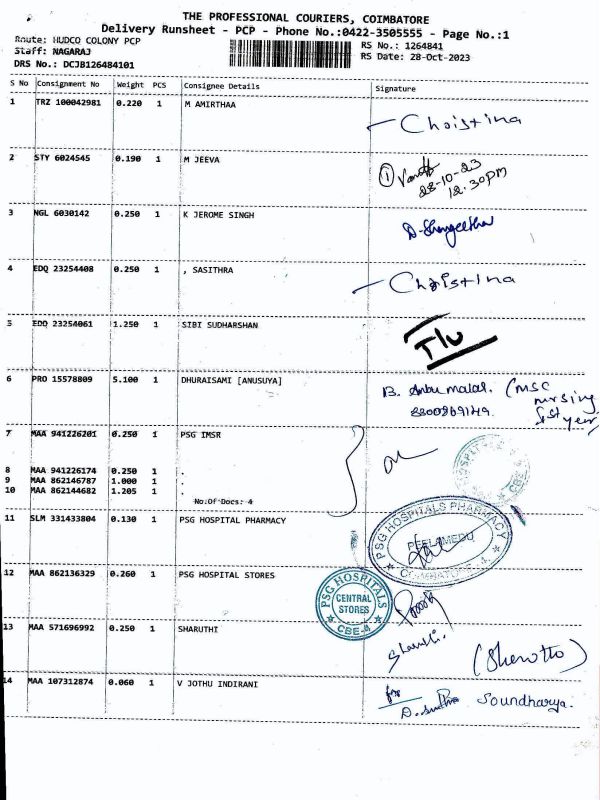 THE PROFESSIONAL COURIERS, COIMBATORE
Delivery Runsheet - PCP - Phone No.:0422-3505555 - Page No.:1
Route: HUDCO COLONY PCP
Staff: NAGARAJ
DRS No.: DCJB126484101
RS No.: 1264841
RS Date: 28-Oct-2023
S No Consignment No Weight PCS Consignee Details Signature
1 TRZ 100042981 0.220 1 M AMIRTHAA
Christina
2 STY 6024545 0.190 1 M JEEVA
28-10-23
12.30pm
3 NGL 6030142 0.250 1 K JEROME SINGH
4 EDQ 23254408 0.250 1 , SASITHRA
Christina
5 EDQ 23254061 1.250 1 SIBI SUDHARSHAN
6 PRO 15578809 5.100 1 DHURAISAMI [ANUSUYA]
B. (MSC
nursing
1st year)
7 MAA 941226201 0.250 1 PSG IMSR
8 MAA 941226174 0.250 1 .
9 MAA 862146787 1.000 1 .
10 MAA 862144682 1.205 1 .
No.Of Docs: 4
11 SLM 331433804 0.130 1 PSG HOSPITAL PHARMACY
PSG HOSPITALS PHARMACY
PEELAMEDU
12 MAA 862136329 0.260 1 PSG HOSPITAL STORES
PSG HOSPITALS
CENTRAL
STORES
CBE-4
13 MAA 571696992 0.250 1 SHARUTHI
14 MAA 107312874 0.060 1 V JOTHU INDIRANI
for
Soundharya.